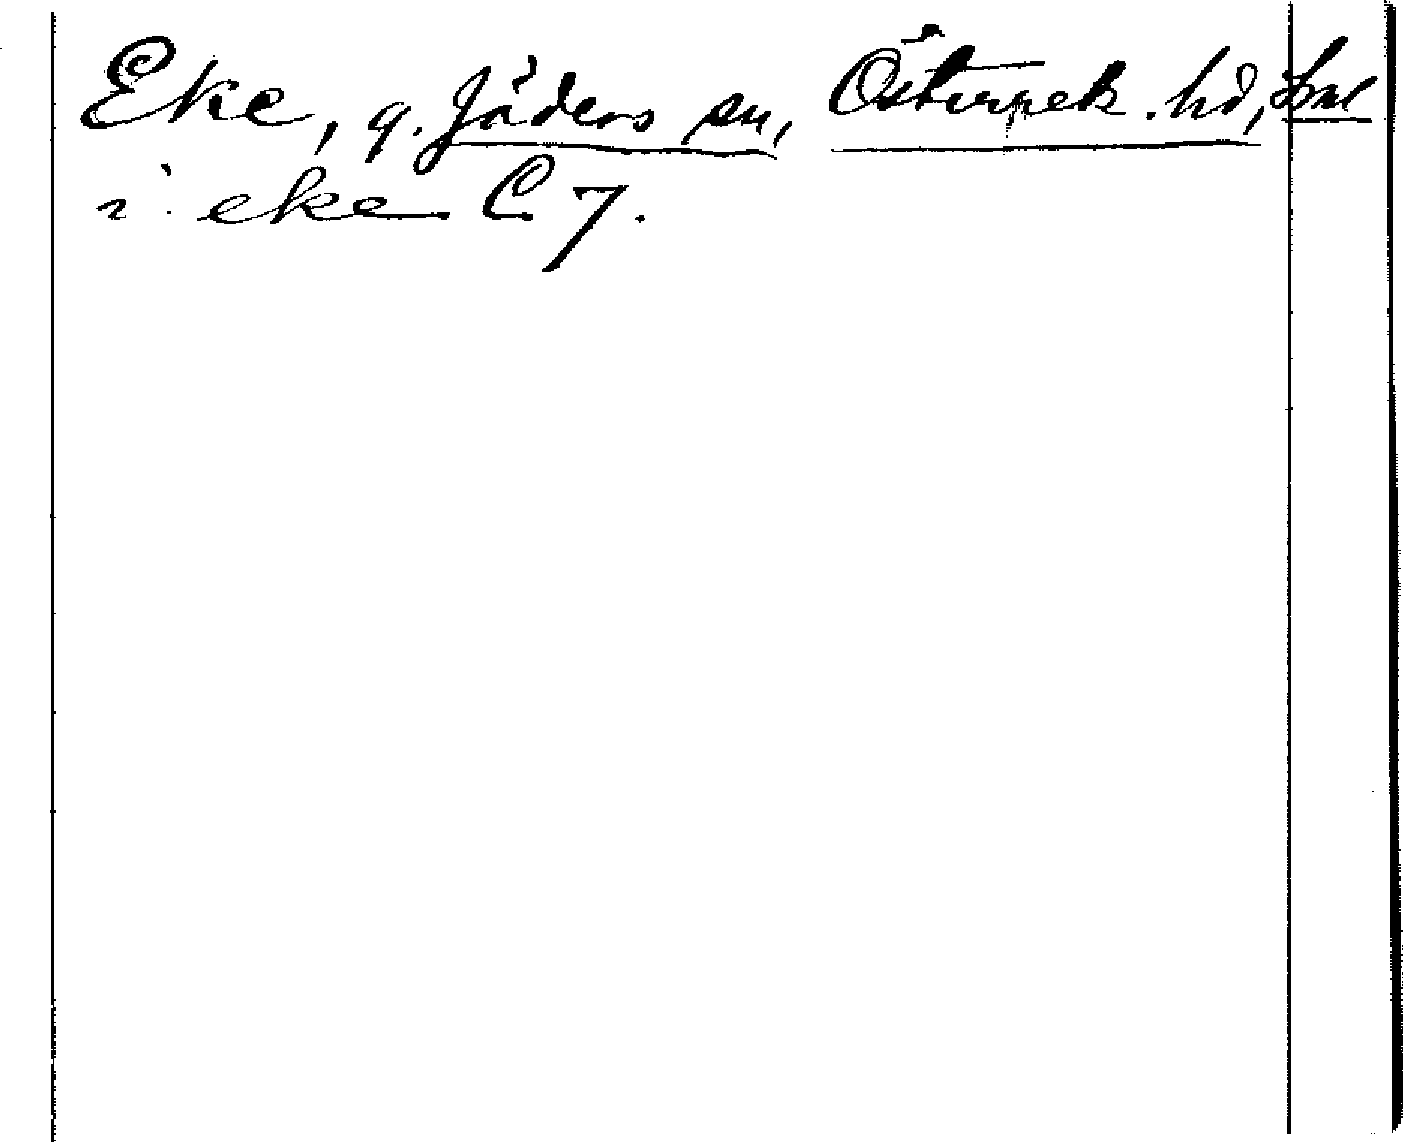 Eke, g. Jäders sn, Österrek. hd, Sml
i eke C 7.